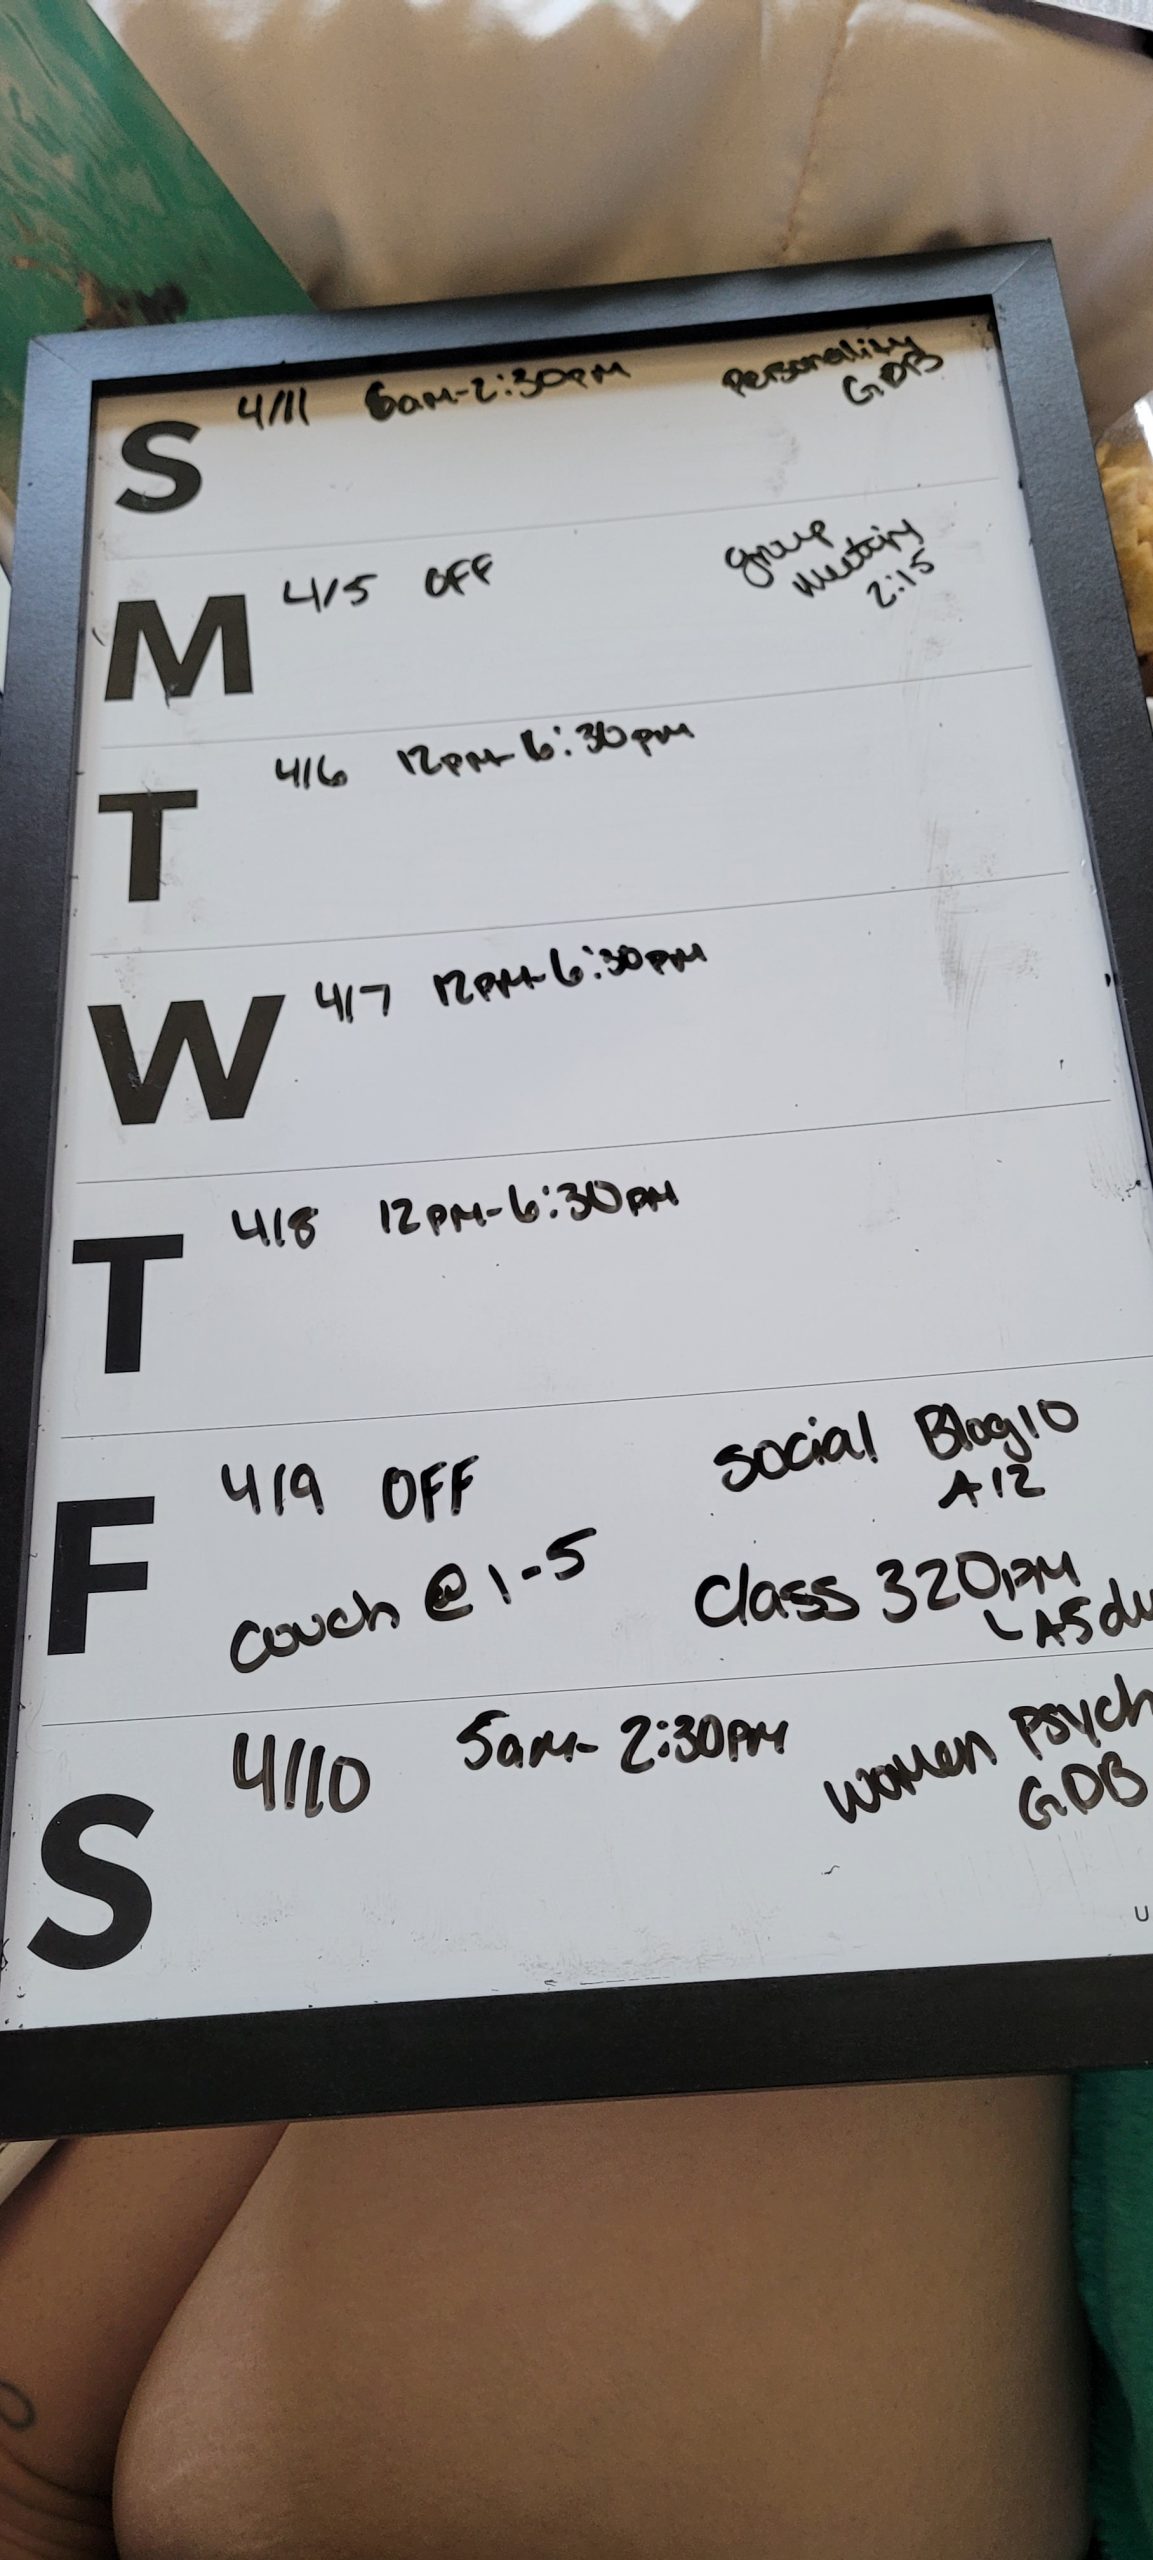 S 4/11 6am-2:30pm Personality
GDB
M 4/5 OFF group
meeting
2:15
T 4/6 12pm-6:30pm
W 4/7 12pm-6:30pm
T 4/8 12pm-6:30pm
F 4/9 OFF social Blog 10
A12
couch @ 1-5 Class 320pm
A5 du
S 4/10 5am-2:30pm women psych
GDB
U